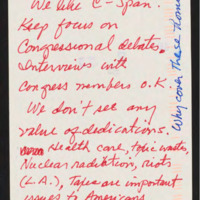 We like C-Span.
Keep focus on
Congressional debates.
Interviews with
Congress members o.k.
We don't see any
value of dedications.
Health care, toxic waste,
Nuclear radiation, riots
(L.A.), Tapes are important
issues to Americans
Why cover These